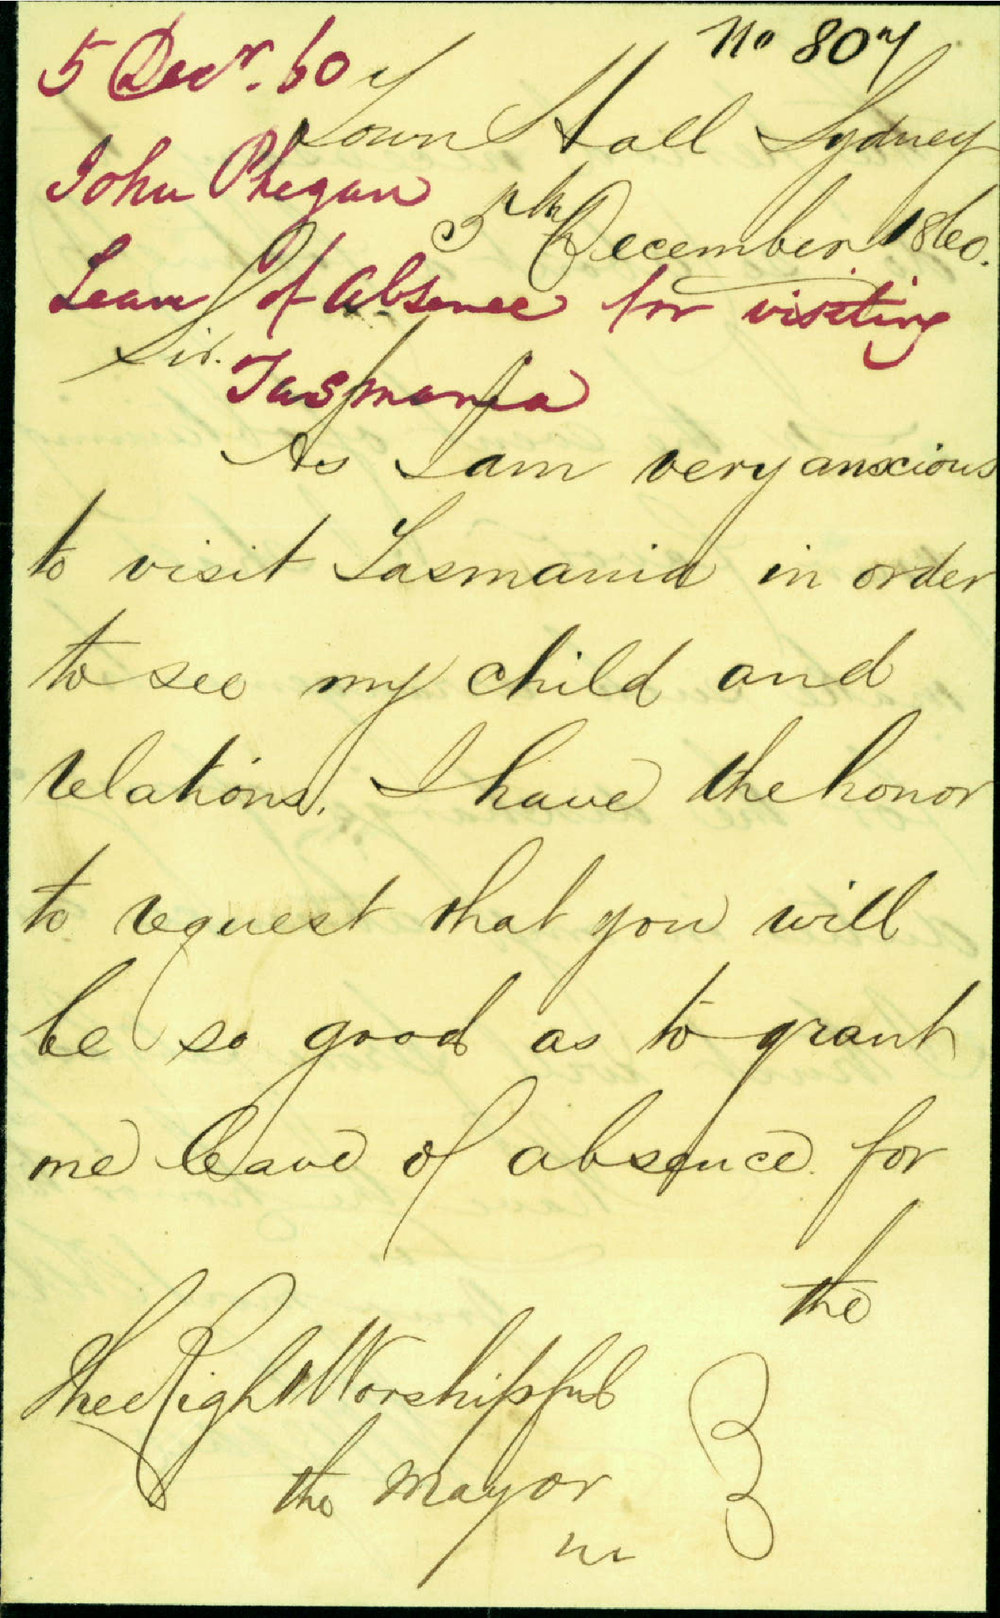 No 807
5 Decr. 60
Town Hall Sydney
John Phegan
5th December 1860.
Leave of absence for visiting
Sir.
Tasmania
As I am very anxious
to visit Tasmania in order
to see my child and
relations. I have the honor
to request that you will
be so good as to grant
me leave of absence for
the
The Right Worshipful
the Mayor